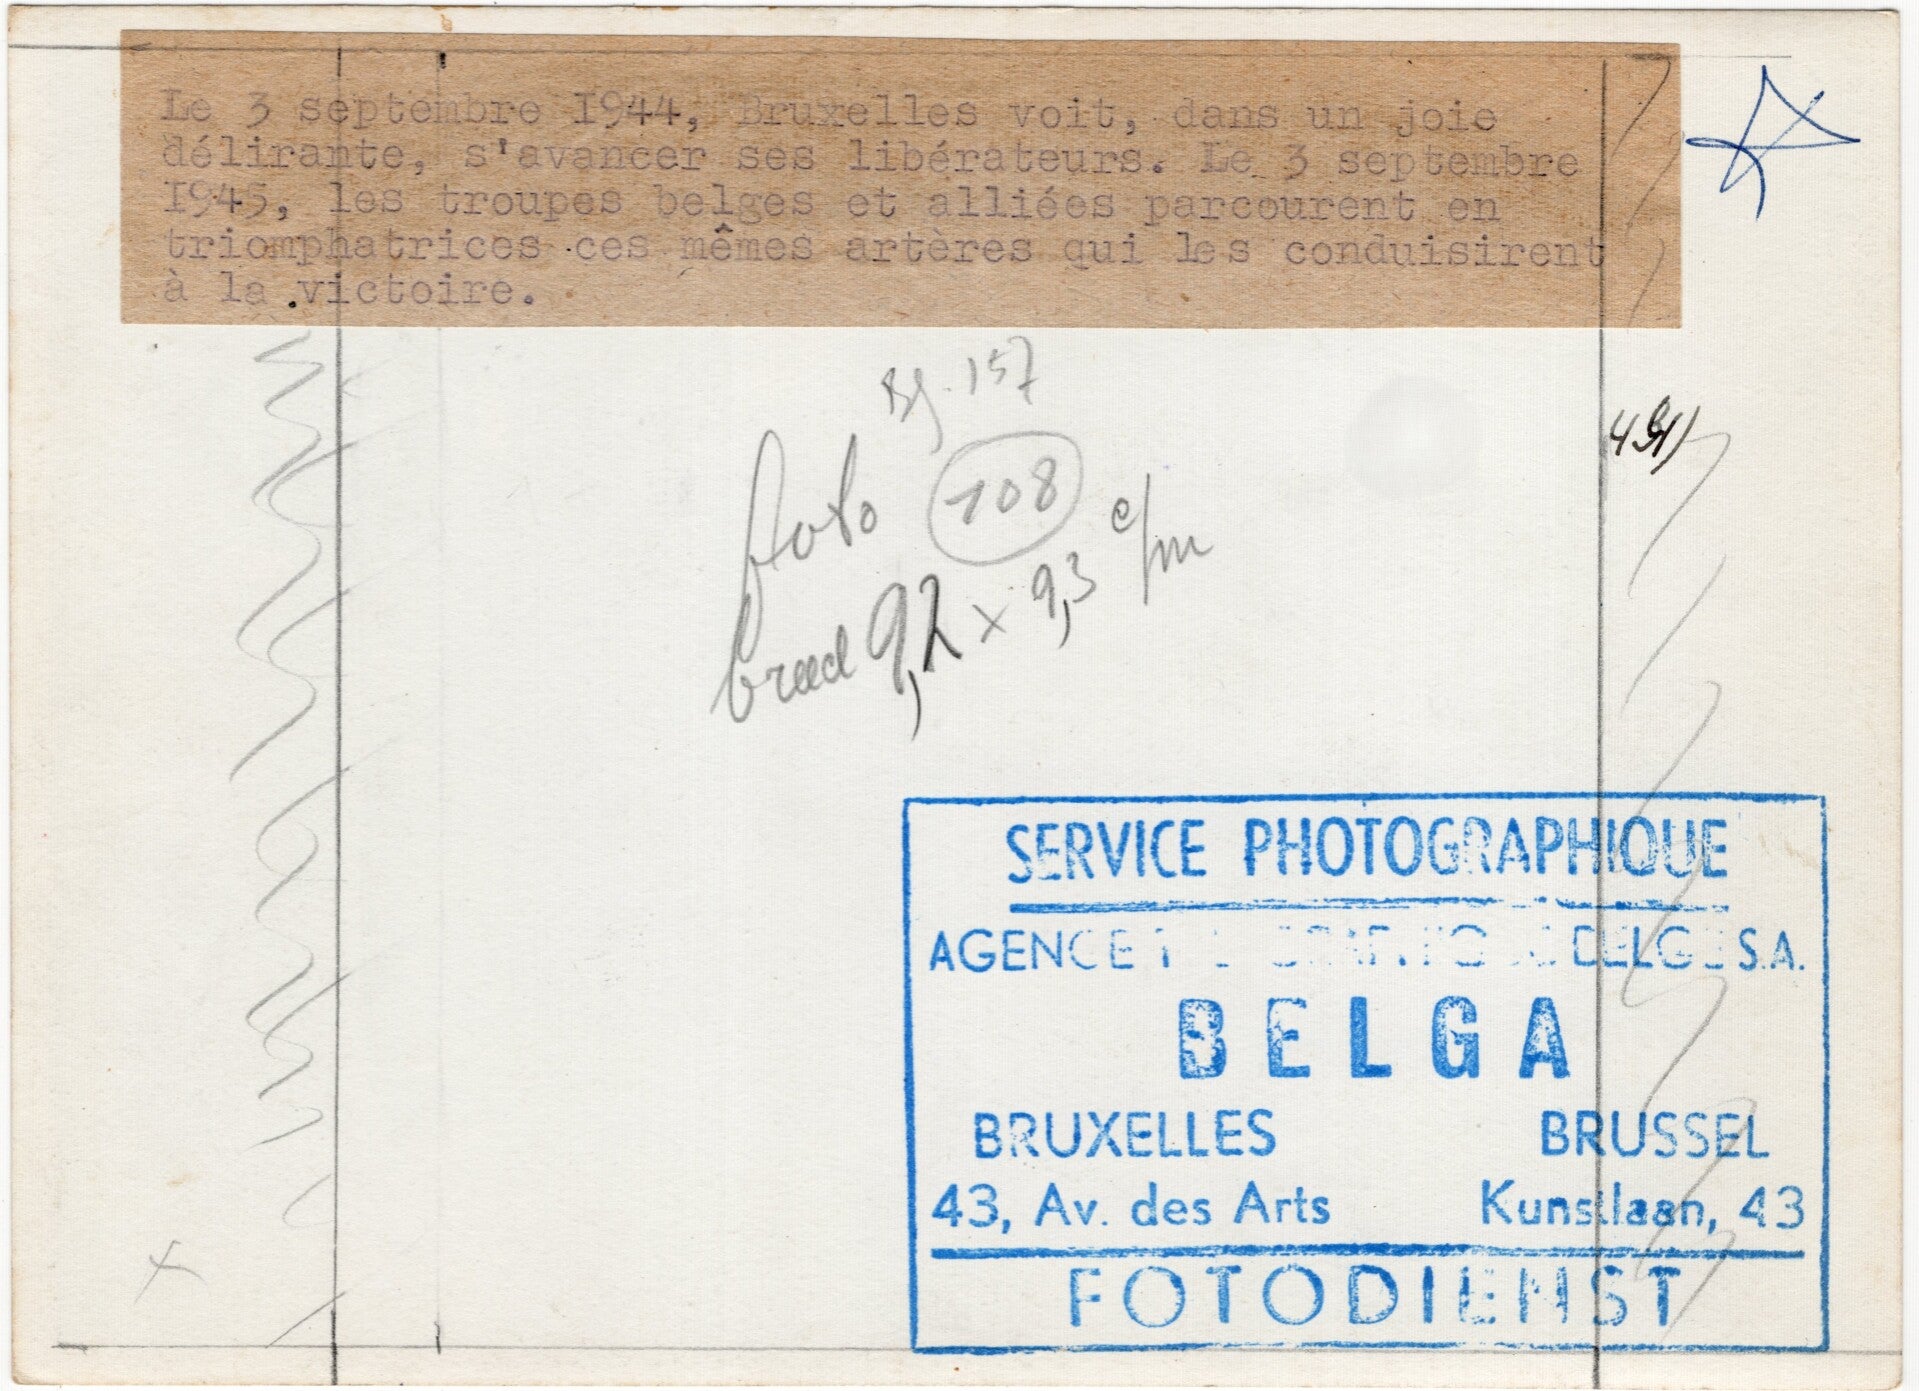 Le 3 septembre 1944, Bruxelles voit, dans un joie
délirante, s'avancer ses libérateurs. Le 3 septembre
1945, les troupes belges et alliées parcourent en
triomphatrices ces mêmes artères qui les conduisirent
à la victoire.
157
foto 108
breed 9,2 x 9,3 c/m
SERVICE PHOTOGRAPHIQUE
AGENCE BELGE S.A.
BELGA
BRUXELLES BRUSSEL
43, Av. des Arts Kunstlaan, 43
FOTODIENST